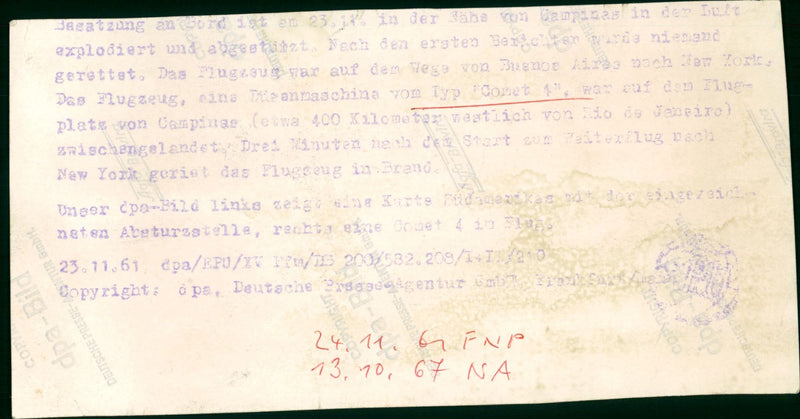 Besatzung an Bord ist am 23.11. in der Nähe von Campinas in der Luft
explodiert und abgestürzt. Nach den ersten Berichten wurde niemand
gerettet. Das Flugzeug war auf dem Wege von Buenos Aires nach New York.
Das Flugzeug, eine Düsenmaschine vom Typ "Comet 4", war auf dem Flug-
platz von Campinas (etwa 400 Kilometer westlich von Rio de Janeiro)
zwischengelandet. Drei Minuten nach dem Start zum Weiterflug nach
New York geriet das Flugzeug in Brand.
Unser dpa-Bild links zeigt eine Karte Südamerikas mit der eingezeich-
neten Absturzstelle, rechts eine Comet 4 im Flug.
23.11.61 dpa/
Copyright: dpa, Deutsche Presse-Agentur GmbH, Frankfurt/
dpa-Bild
DEUTSCHE PRESSE-AGENTUR GmbH
24.11.61 FNP
13.10.67 NA